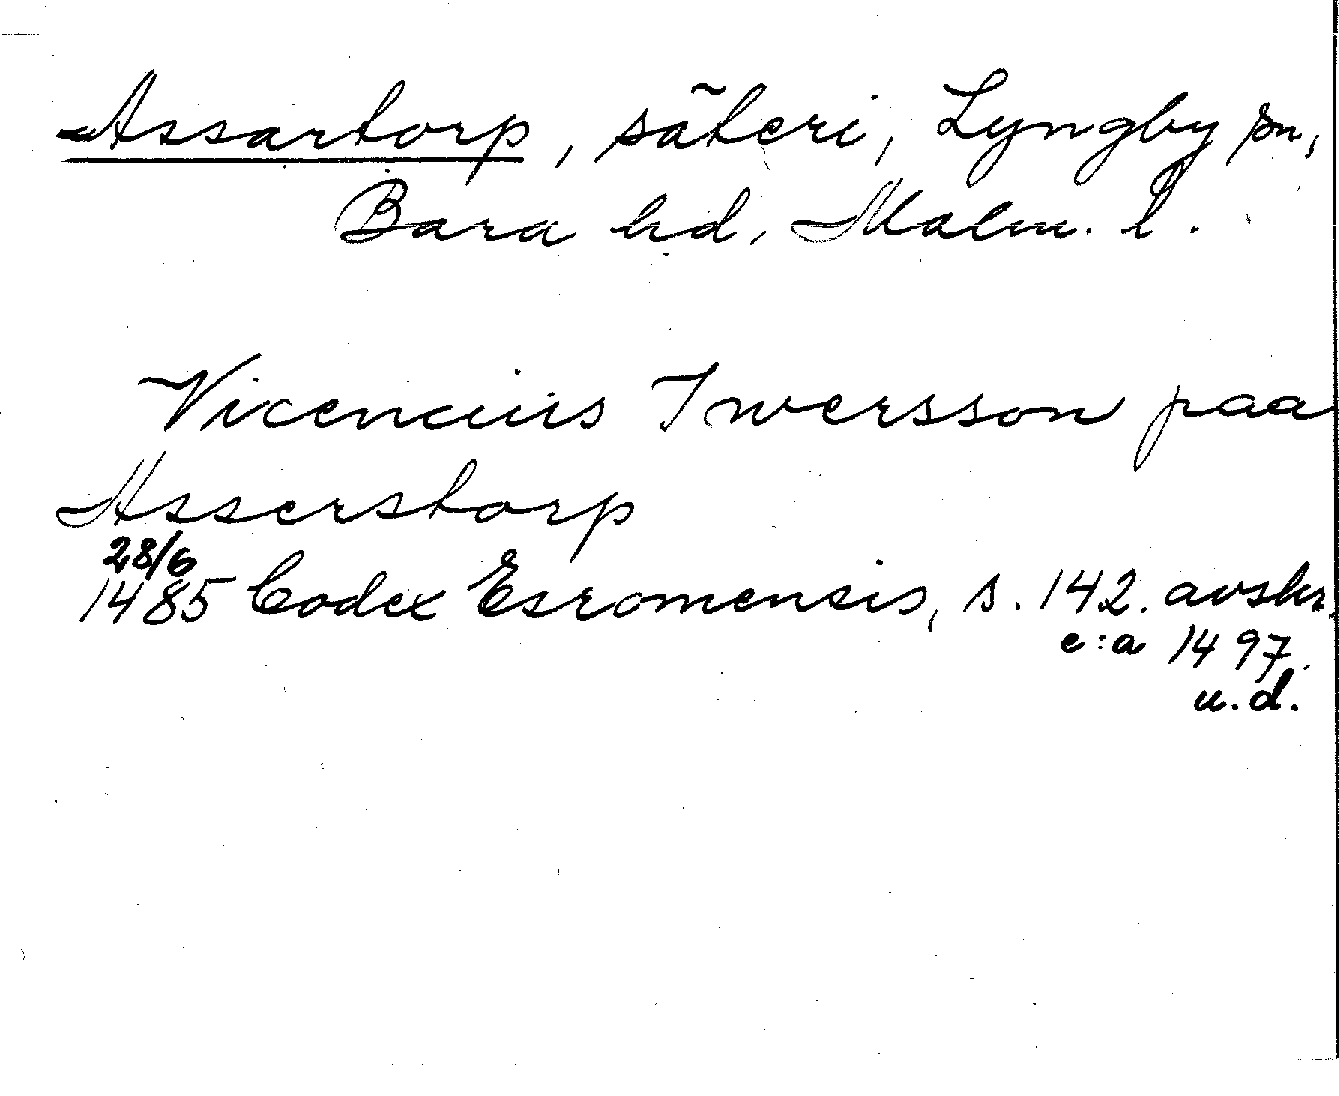 Assartorp, säteri, Lyngby sn,
Bara hd, Malm. l.
Vicencius Iwersson paa
Asserstorp
28/6
1485 Codex Esromensis, s. 142. avskr.
c:a 1497.
u.d.